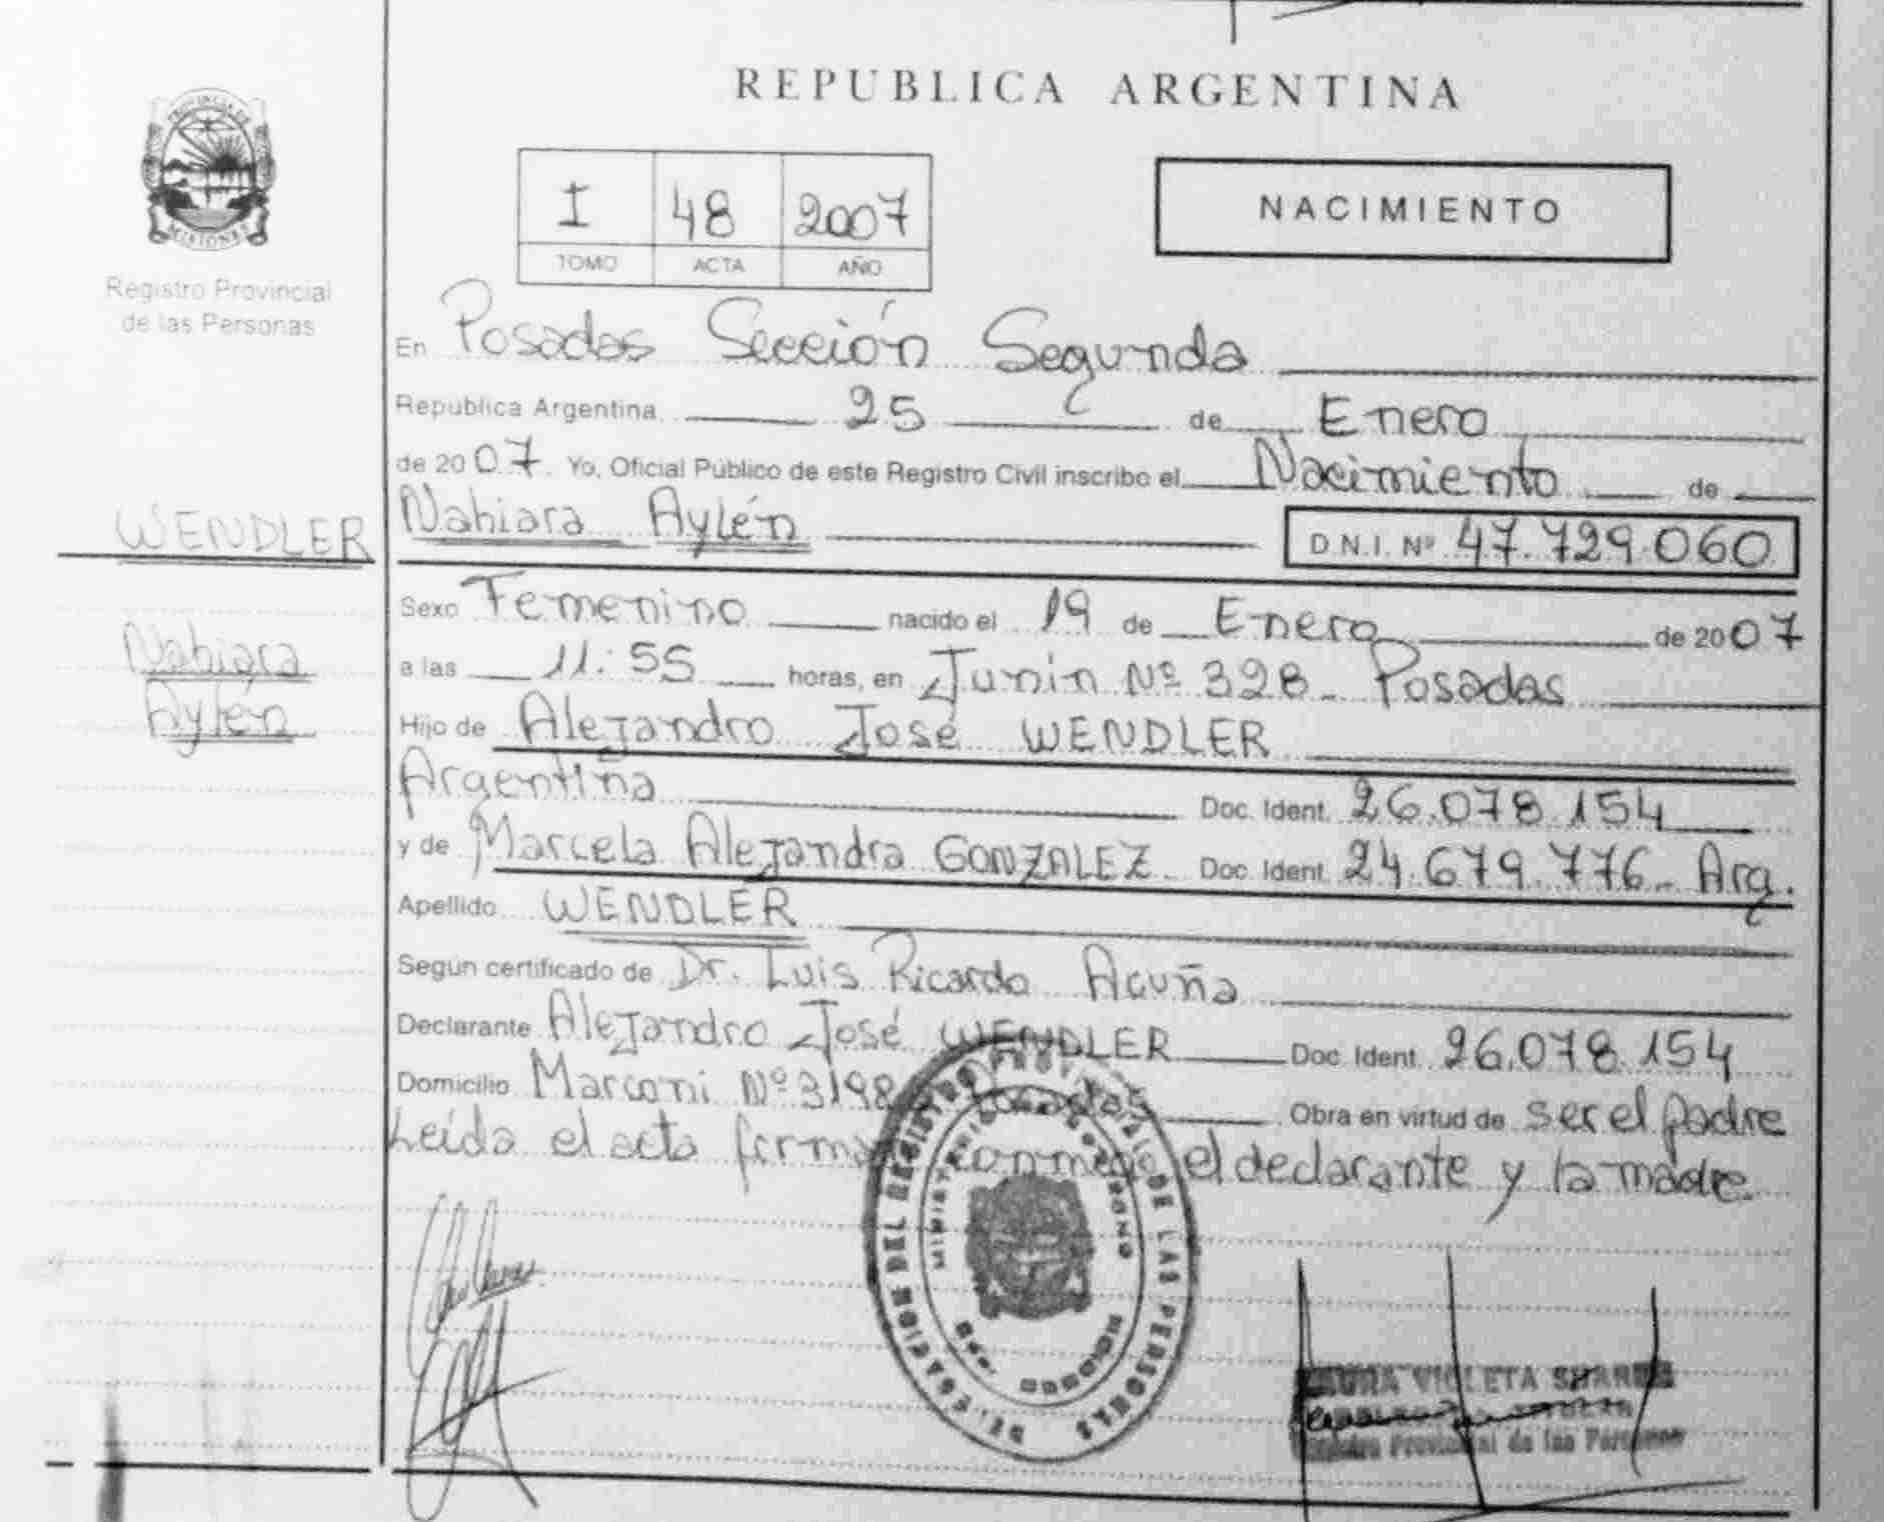 REPUBLICA ARGENTINA
PROVINCIA DE
MISIONES
Registro Provincial
de las Personas
I 48 2007
TOMO ACTA AÑO
NACIMIENTO
En Posadas Sección Segunda
Republica Argentina 25 de Enero
de 2007. Yo, Oficial Público de este Registro Civil inscribo el Nacimiento de
WENDLER
Nahiara Aylén D.N.I. Nº 47.729.060
Sexo Femenino nacido el 19 de Enero de 2007
Nahiara
Aylén
a las 11:55 horas, en Junin Nº 328 - Posadas
Hijo de Alejandro José WENDLER
Argentina Doc. Ident. 26.078.154
y de Marcela Alejandra GONZALEZ Doc. Ident. 24.679.776 - Arg.
Apellido WENDLER
Según certificado de Dr. Luis Ricardo Acuña
Declarante Alejandro José WENDLER Doc. Ident. 26.078.154
Domicilio Marconi Nº 3198 Posadas Obra en virtud de ser el padre
Leída el acta firman conmigo el declarante y la madre.
DELEGACION DEL REGISTRO PROVINCIAL DE LAS PERSONAS
MINISTERIO DE GOBIERNO
MISIONES
LAURA VIOLETA
Registro Provincial de las Personas